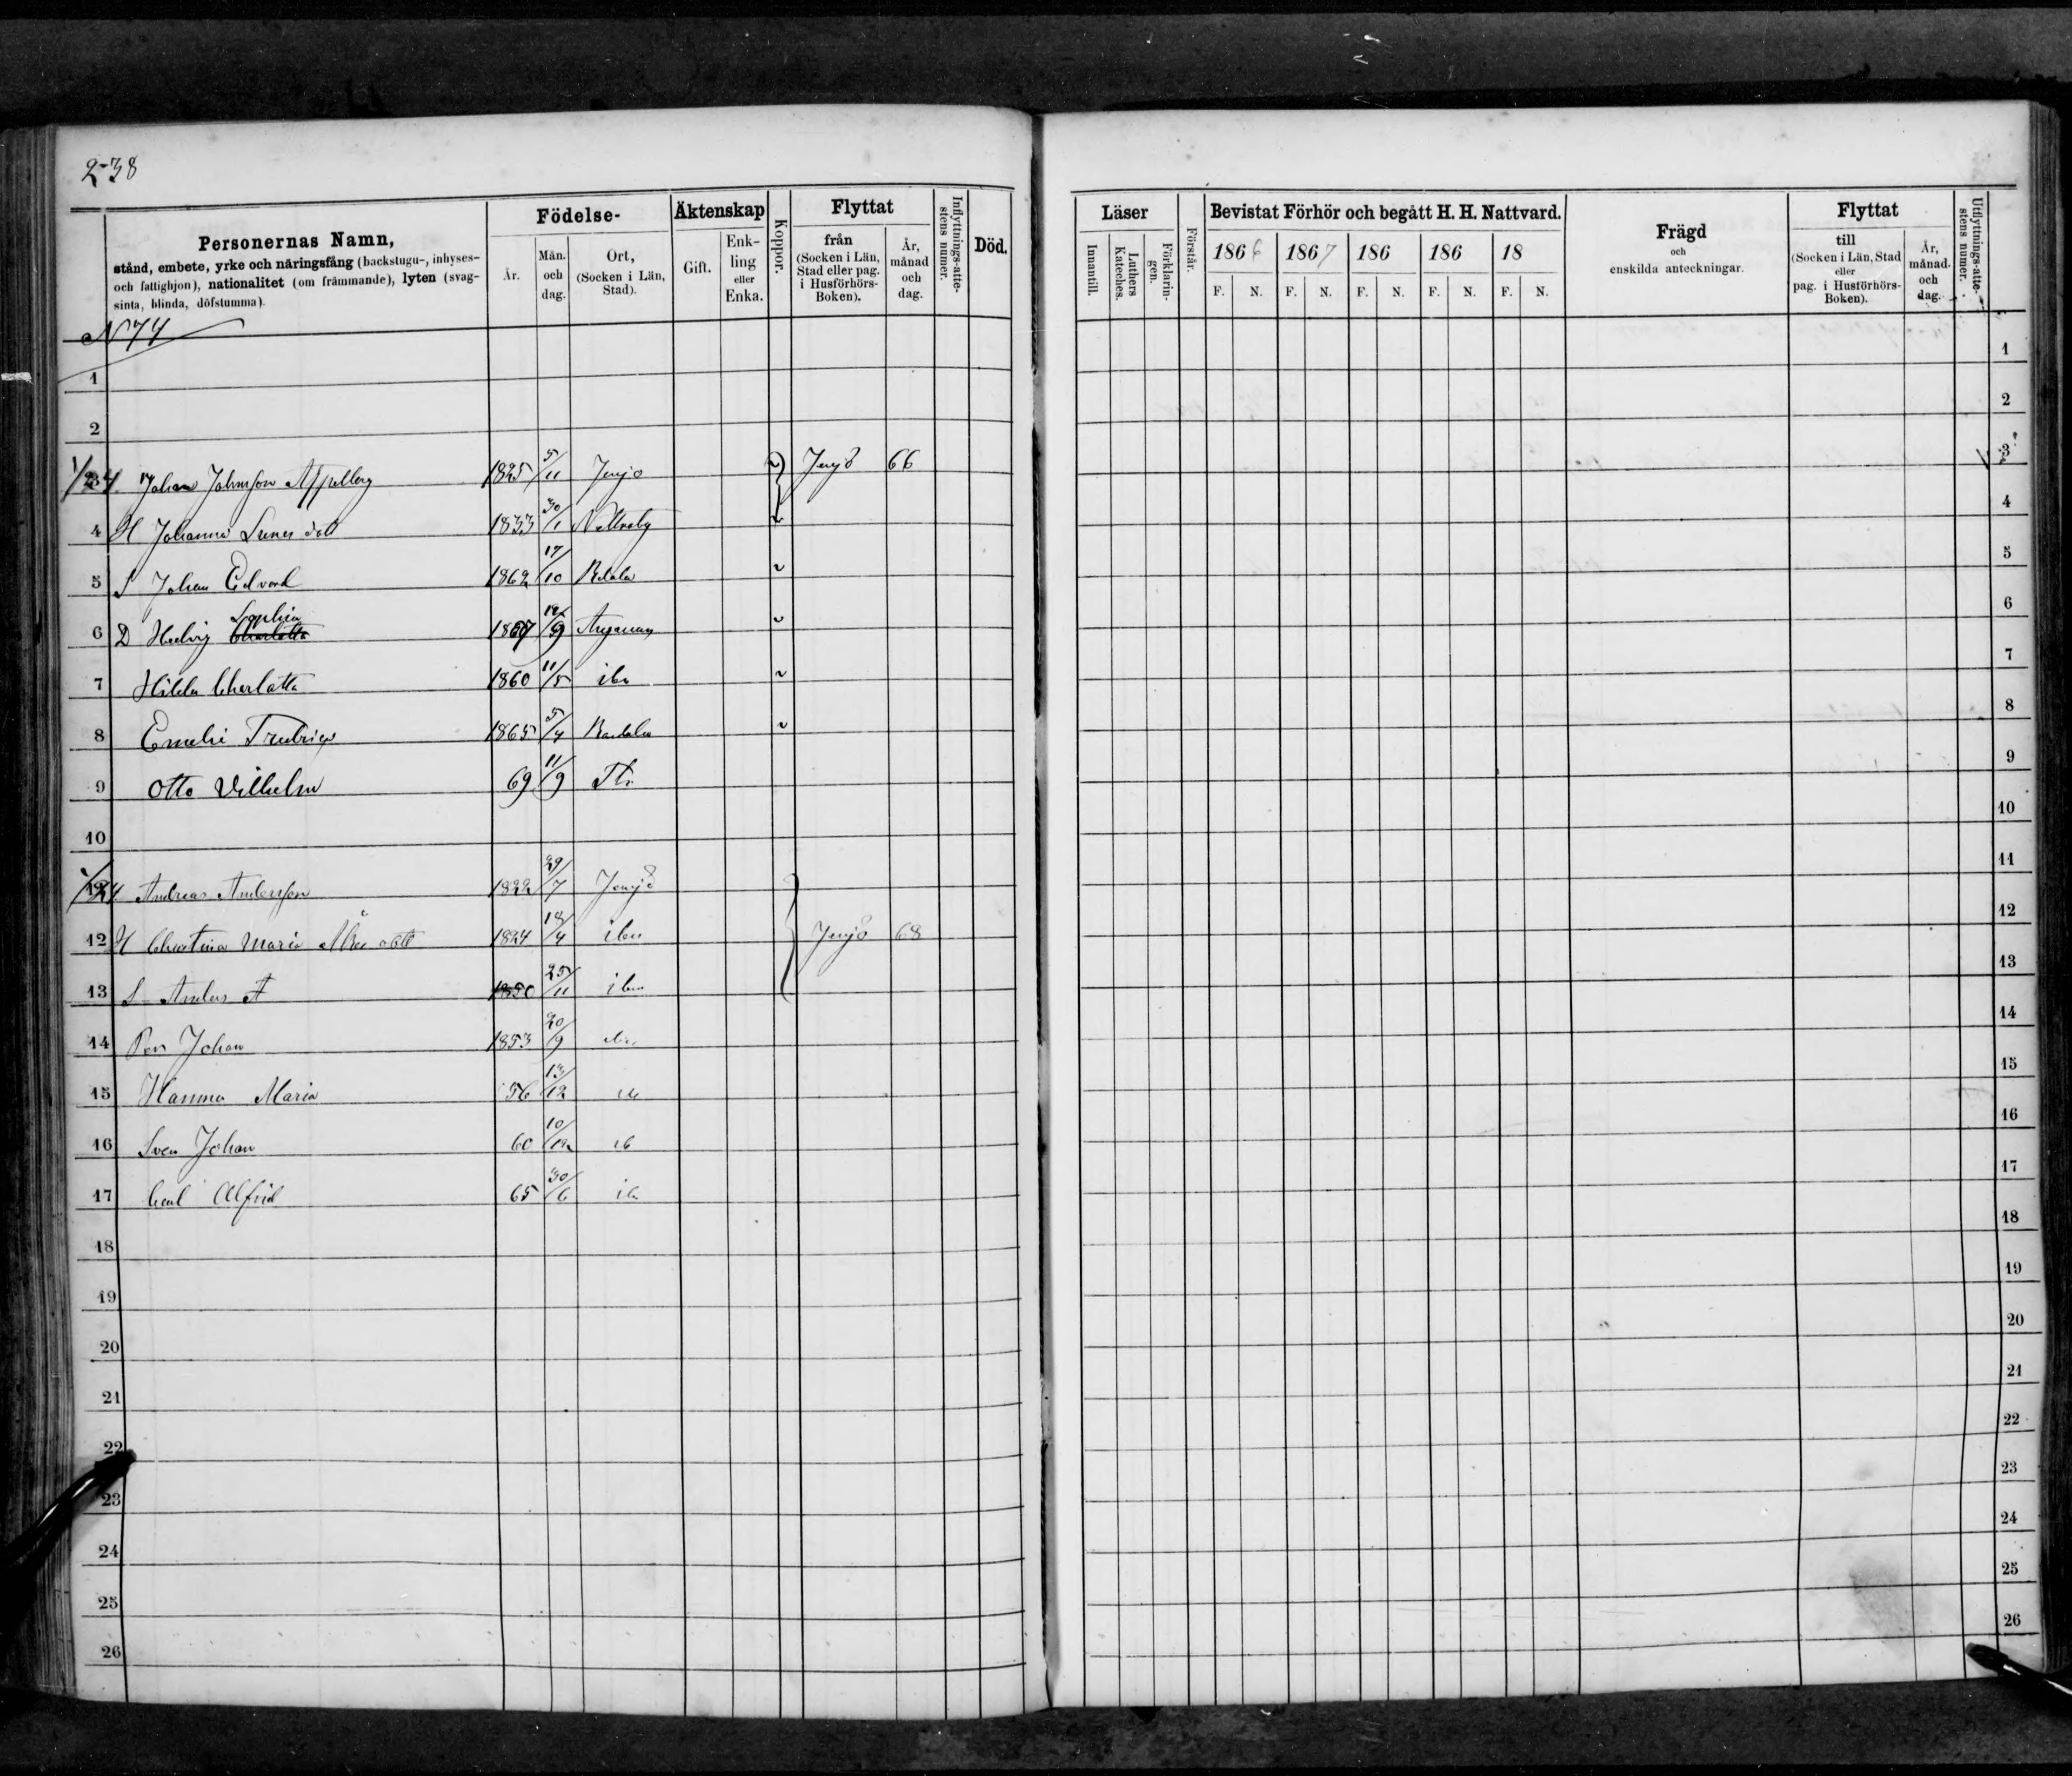 238
Personernas Namn,
stånd, embete, yrke och näringsfång (backstugu-, inhyses-
och fattighjon), nationalitet (om främmande), lyten (svag-
sinta, blinda, döfstumma).
Födelse-
År.
Mån. och dag.
Ort, (Socken i Län, Stad).
Äktenskap
Gift.
Enk- ling eller Enka.
Koppor.
Flyttat
från (Socken i Län, Stad eller pag. i Husförhörs- Boken).
År, månad och dag.
Inflyttnings-atte- stens numer.
Död.
Läser
Innantill.
Luthers Kateches.
Förklarin- gen.
Förstår.
Bevistat Förhör och begått H. H. Nattvard.
1866 1867 186 186 18
F. N. F. N. F. N. F. N. F. N.
Frägd
och
enskilda anteckningar.
Flyttat
till (Socken i Län, Stad eller pag. i Husförhörs- Boken).
År, månad och dag.
Utflyttnings-atte- stens numer.
N 74
1 1
2 2
1/24. Johan Johnsson Appelberg 1825 5/11 Jemjö Jemjö 66 3
4 H Johanna Svens dott 1833 30/1 Nettraby 4
5 S Johan Edvard 1862 17/10 5
6 D Hedvig Sophia Charlotta 1857 12/9 6
7 Hilda Charlotta 1860 11/5 ibm 7
8 Emelie Fredrica 1865 5/4 8
9 Otto Vilhelm 69 11/9 9
10 10
1/24. Andreas Andersson 1822 29/7 Jemjö 11
12 H Christina Maria 1824 18/4 ibm Jemjö 68 12
13 S Anders A 1850 25/11 ibm 13
14 Per Johan 1853 20/9 ibm 14
15 Hanna Maria 56 13/12 ib 15
16 Sven Johan 60 10/12 ib 16
17 Carl Alfrid 65 30/6 ib 17
18 18
19 19
20 20
21 21
22 22
23 23
24 24
25 25
26 26